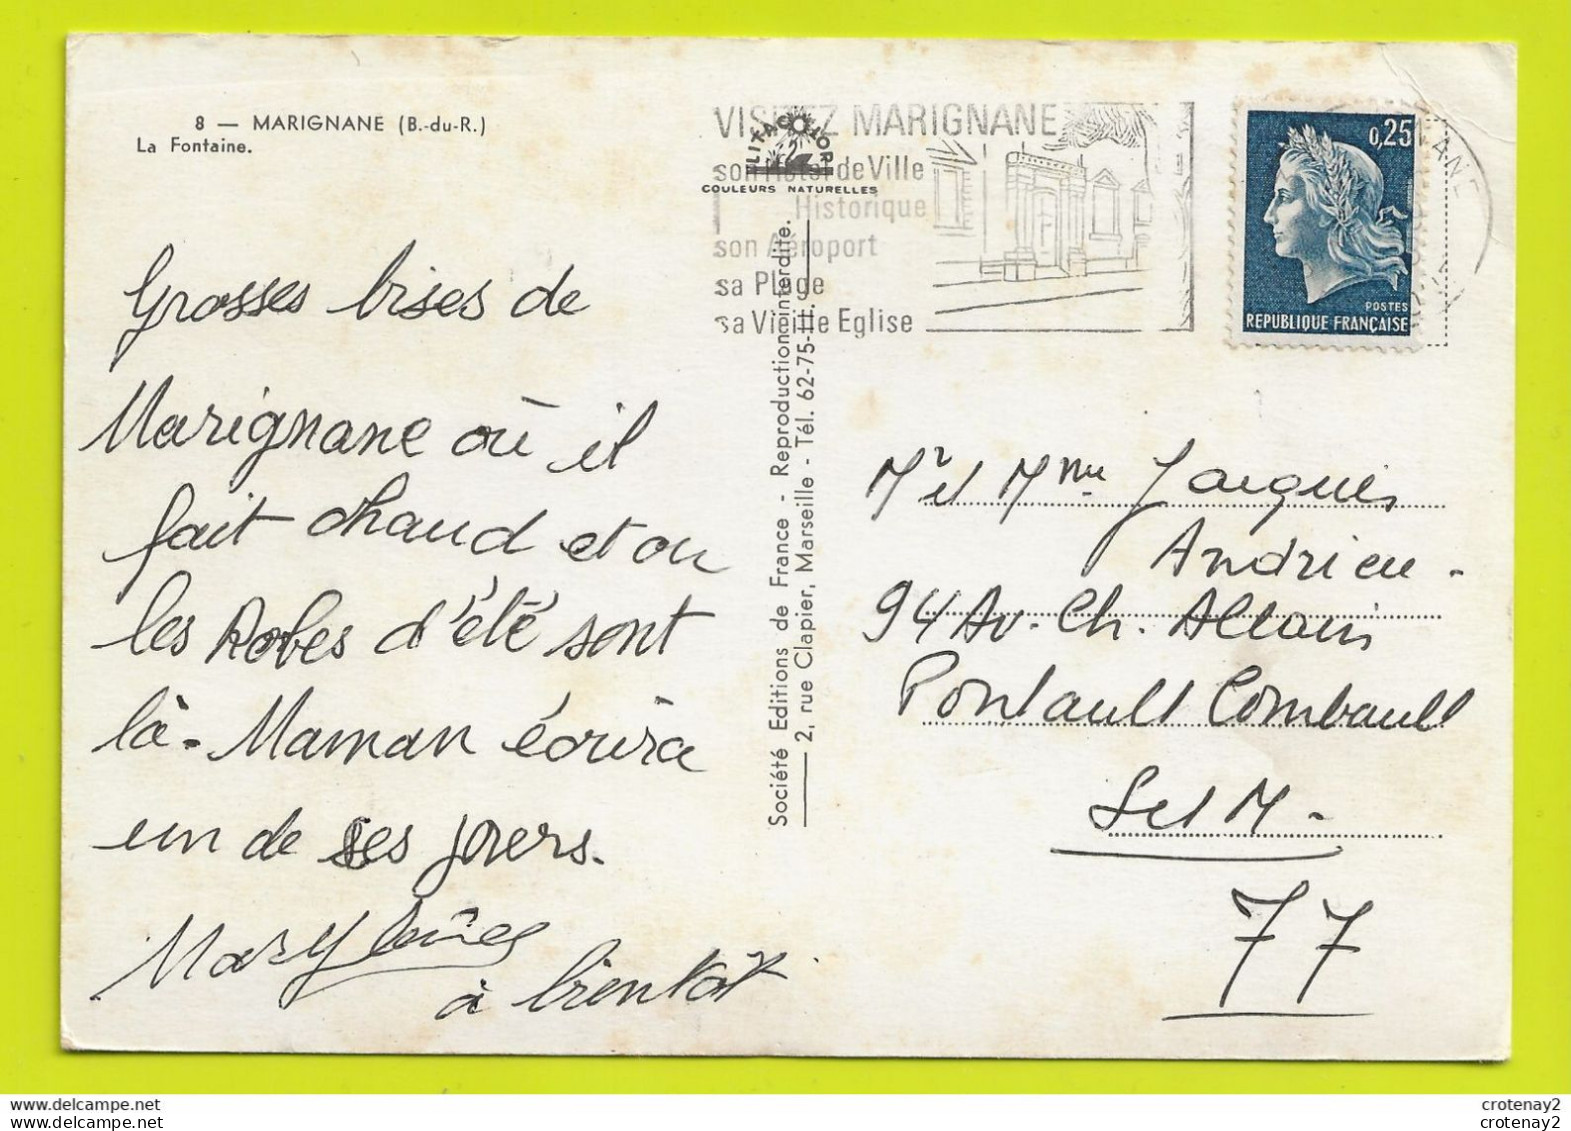 8 — MARIGNANE (B.-du-R.)
La Fontaine.
Grosses bises de
Marignane où il
fait chaud et où
les Robes d'été sont
là. Maman écrira
un de ses jours.
Marylène
à bientôt
LITACOLOR
COULEURS NATURELLES
Société Editions de France - Reproduction interdite.
2, rue Clapier, Marseille - Tél. 62-75-
VISITEZ MARIGNANE
son Hôtel de Ville
Historique
son Aéroport
sa Plage
sa Vieille Eglise
0,25
POSTES
REPUBLIQUE FRANÇAISE
Mr et Mme Jacques
Andrieu -
94 Av. Ch. Allain
Pontault Combault
S et M.
77
crotenay2
crotenay2
crotenay2
crotenay2